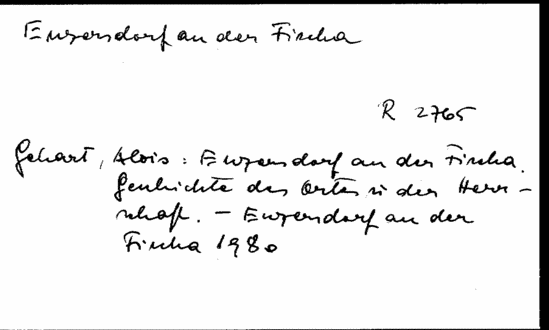 Enzersdorf an der Fischa
R 2765
Gehart, Alois: Enzersdorf an der Fischa.
Geschichte des Ortes u der Herr-
schaft. - Enzersdorf an der
Fischa 1980